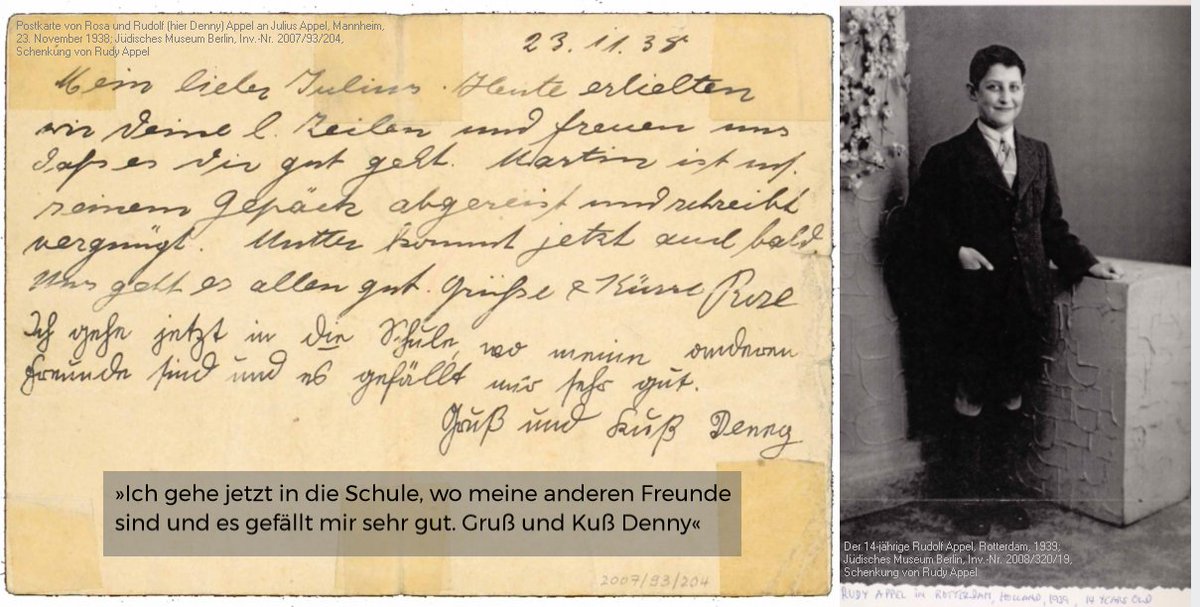 Postkarte von Rosa und Rudolf (hier Denny) Appel an Julius Appel, Mannheim,
23. November 1938; Jüdisches Museum Berlin, Inv.-Nr. 2007/93/204,
Schenkung von Rudy Appel
23.11.38
Mein lieber Julius. Heute erhielten
wir Deine l. Zeilen und freuen uns
daß es dir gut geht. Martin ist mit
seinem Gepäck abgereist und schreibt
vergnügt. Mutter kommt jetzt auch bald.
Uns geht es allen gut. Grüße & Küsse Rosl
Ich gehe jetzt in die Schule, wo meine anderen
Freunde sind und es gefällt mir sehr gut.
Gruß und Kuß Denny
»Ich gehe jetzt in die Schule, wo meine anderen Freunde
sind und es gefällt mir sehr gut. Gruß und Kuß Denny«
2007/93/204
Der 14-jährige Rudolf Appel, Rotterdam, 1939;
Jüdisches Museum Berlin, Inv.-Nr. 2008/320/19,
Schenkung von Rudy Appel
RUDY APPEL IN ROTTERDAM, HOLLAND, 1939, 14 YEARS OLD